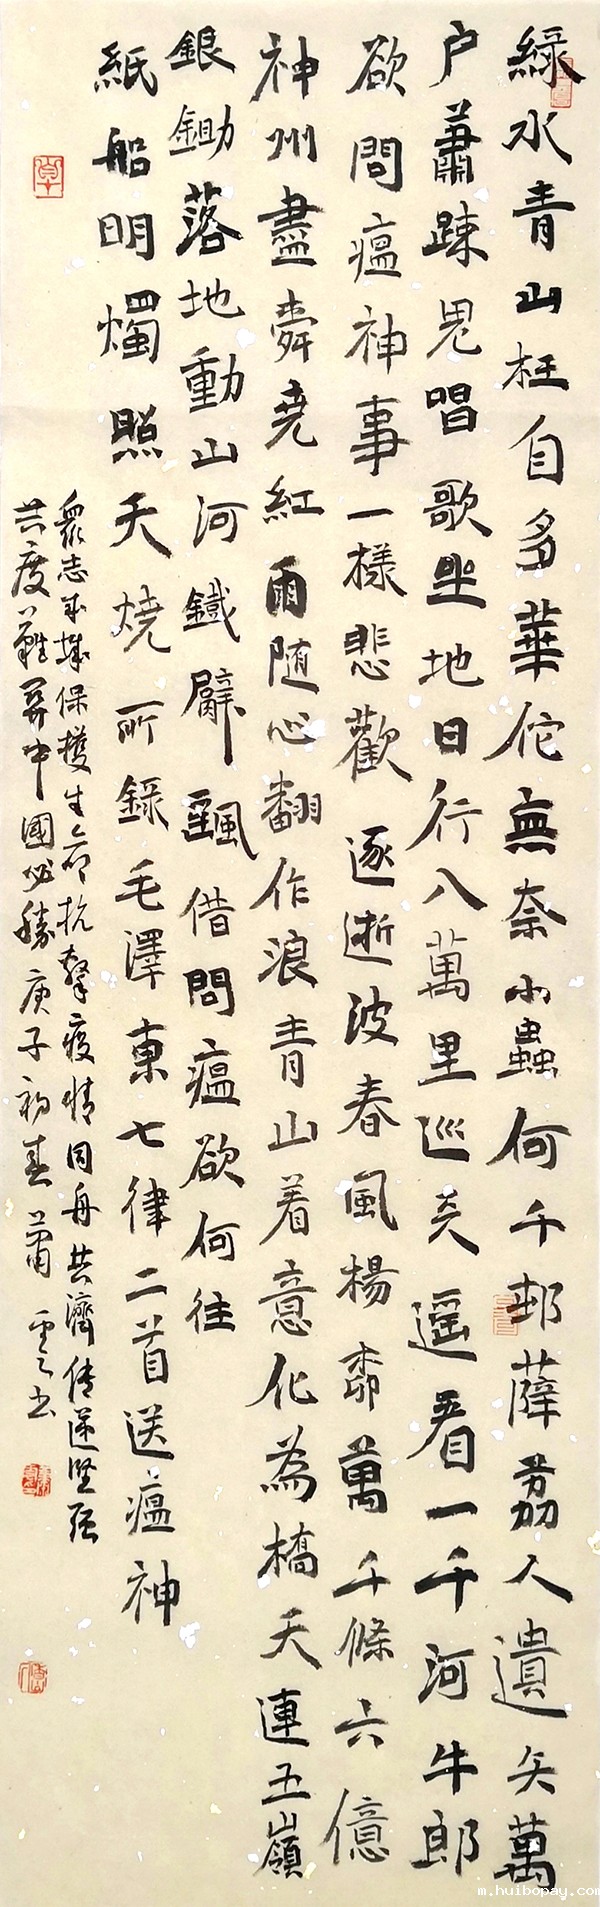 綠水青山枉自多華佗無奈小蟲何千邨薜荔人遺矢萬
户蕭疎鬼唱歌坐地日行八萬里巡天遥看一千河牛郎
欲問瘟神事一樣悲歡逐逝波春風楊柳萬千條六億
神州盡舜堯紅雨随心翻作浪青山着意化為橋天連五嶺
銀鋤落地動山河鐵臂颻借問瘟欲何往
紙船明燭照天燒所錄毛澤東七律二首送瘟神
衆志成城保護生命抗擊疫情同舟共濟傳遞堅强
共度難關中國必勝庚子初春蕭雲書
m.huibopay.com